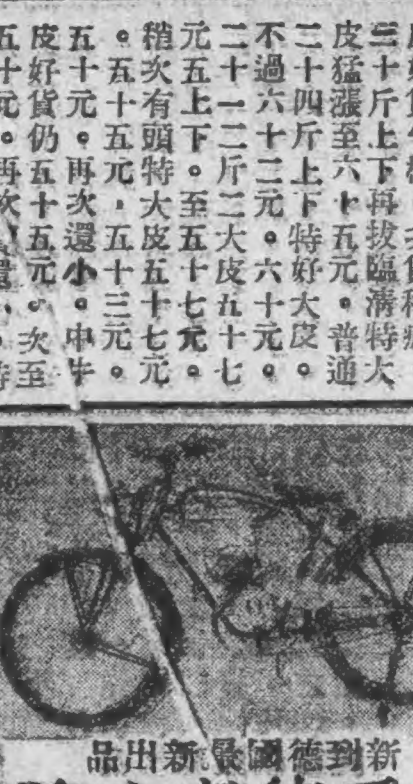 三十斤上下再拔臨溝特大
皮猛漲至六十五元。普通
二十四斤上下特好大皮。
不過六十二元。六十元。
二十一二斤二大皮五十七
元五上下。至五十七元。
稍次有頭特大皮五十七元
。五十五元，五十三元。
五十元。再次還小。中牛
皮好貨仍五十五元。次至
五十元。再次
新到德國最新出品